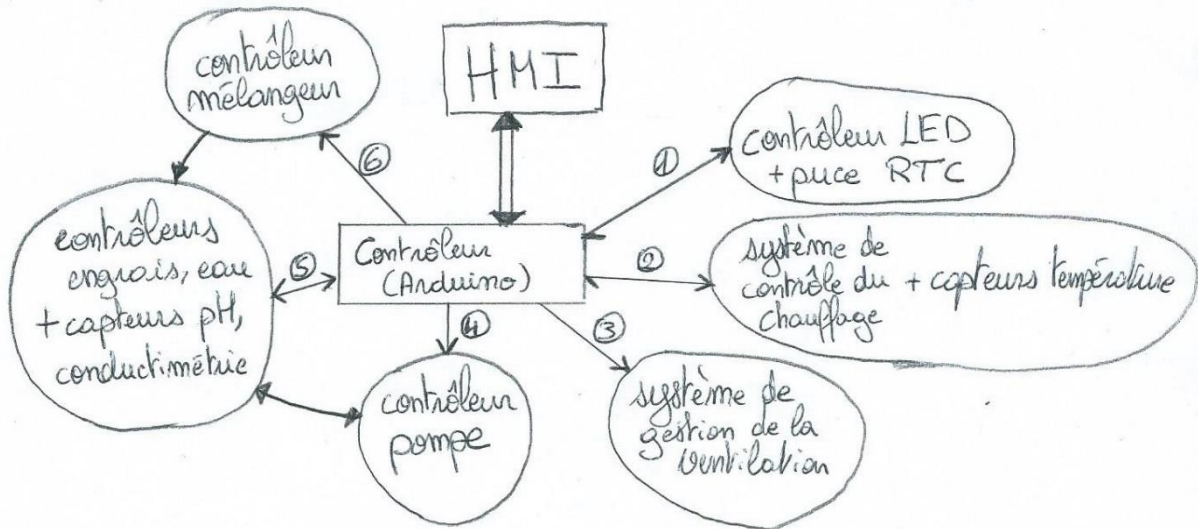 contrôleur
mélangeur
HMI
contrôleur LED
+ puce RTC
⑥
①
contrôleurs
engrais, eau
+ capteurs pH,
conductimétrie
⑤
Contrôleur
(Arduino)
②
système de
contrôle du + capteurs température
chauffage
④
③
contrôleur
pompe
système de
gestion de la
ventilation